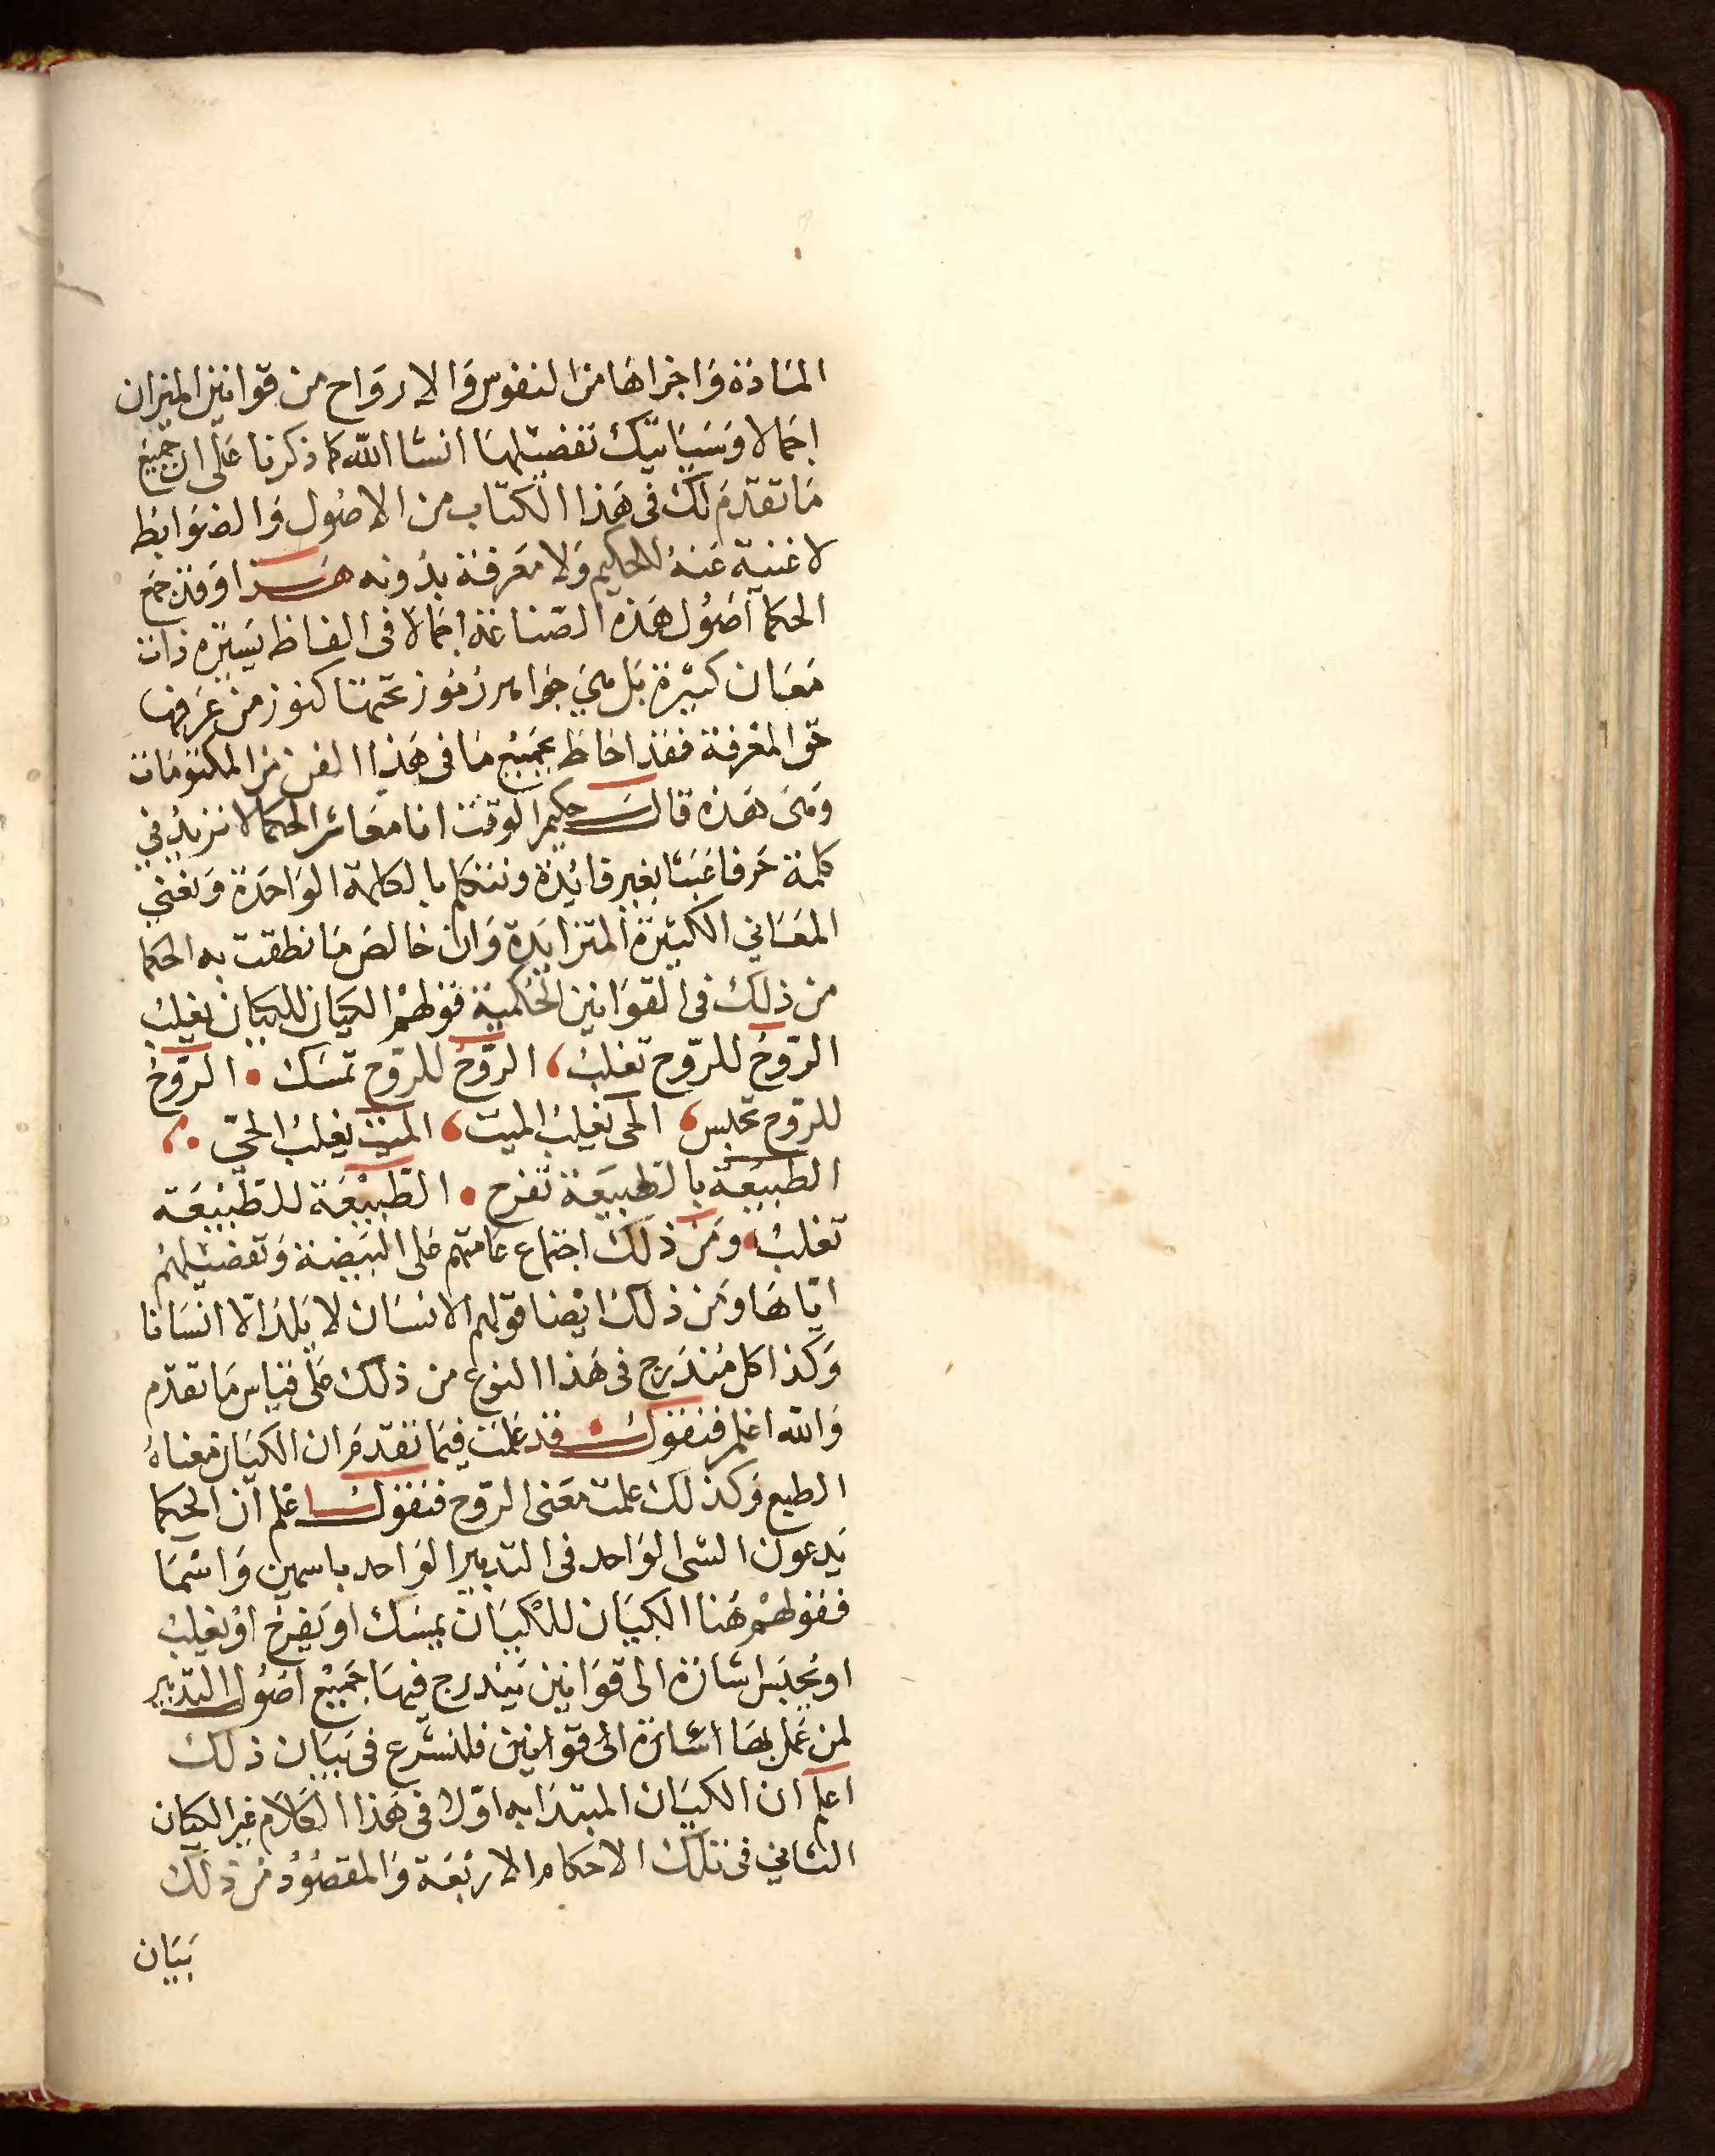 المادة واجزاها من النفوس والارواح من قوانين الميزان
اجمالا وسياتيك تفصيلها انشا الله كما ذكرنا على ان جميع
ما تقدم لك فى هذا الكتاب من الاصول والضوابط
لا غنية عنه للحكيم ولا معرفة بدونه هذا وقد جمع
الحكما اصول هذه الصناعة اجمالا فى الفاظ يسيرة ذات
معان كثيرة بل هي جوامر رموز تحتها كنوز من عرفها
حق المعرفة فقد احاط بجميع ما فى هذا الفن من المكتومات
ومن هذه قال حكيم الوقت انا معاشر الحكما لا نزيد في
كلمة حرفا عبثا بغير فايدة ونتكلم بالكلمة الواحدة ونعني
المعاني الكثيرة المتزايدة وان خالص ما نطقت به الحكما
من ذلك فى القوانين الحكمية قولهم الكيان للكيان يغلب
الروح للروح تغلب، الروح للروح تمسك • الروح
للروح تحبس، الحى يغلب الميت، الميت يغلب الحي •،
الطبيعة بالطبيعة تفرح • الطبيعة للطبيعة
تغلب، ومن ذلك اجتماع عامتهم على البيضة وتفضيلهم
اياها ومن ذلك ايضا قولهم الانسان لا يلد الا انسانا
وكذا كل مندرج فى هذا النوع من ذلك على قياس ما تقدم
والله اعلم فنقول • قد علمت فيما تقدم ان الكيان معناه
الطبع وكذلك علمت معنى الروح فنقول اعلم ان الحكما
يدعون الشى الواحد فى التدبير الواحد باسمين واسما
فقولهم هنا الكيان للكيان يمسك او يفرح او يغلب
او يحبس اشارة الى قوانين يندرج فيها جميع اصول التدبير
لمن عمل بها اشارة الى قوانين فلنشرع فى بيان ذلك
اعلم ان الكيان المبتدا به اولا فى هذا الكلام غير الكيان
الثاني فى تلك الاحكام الاربعة والمقصود من ذلك
بيان